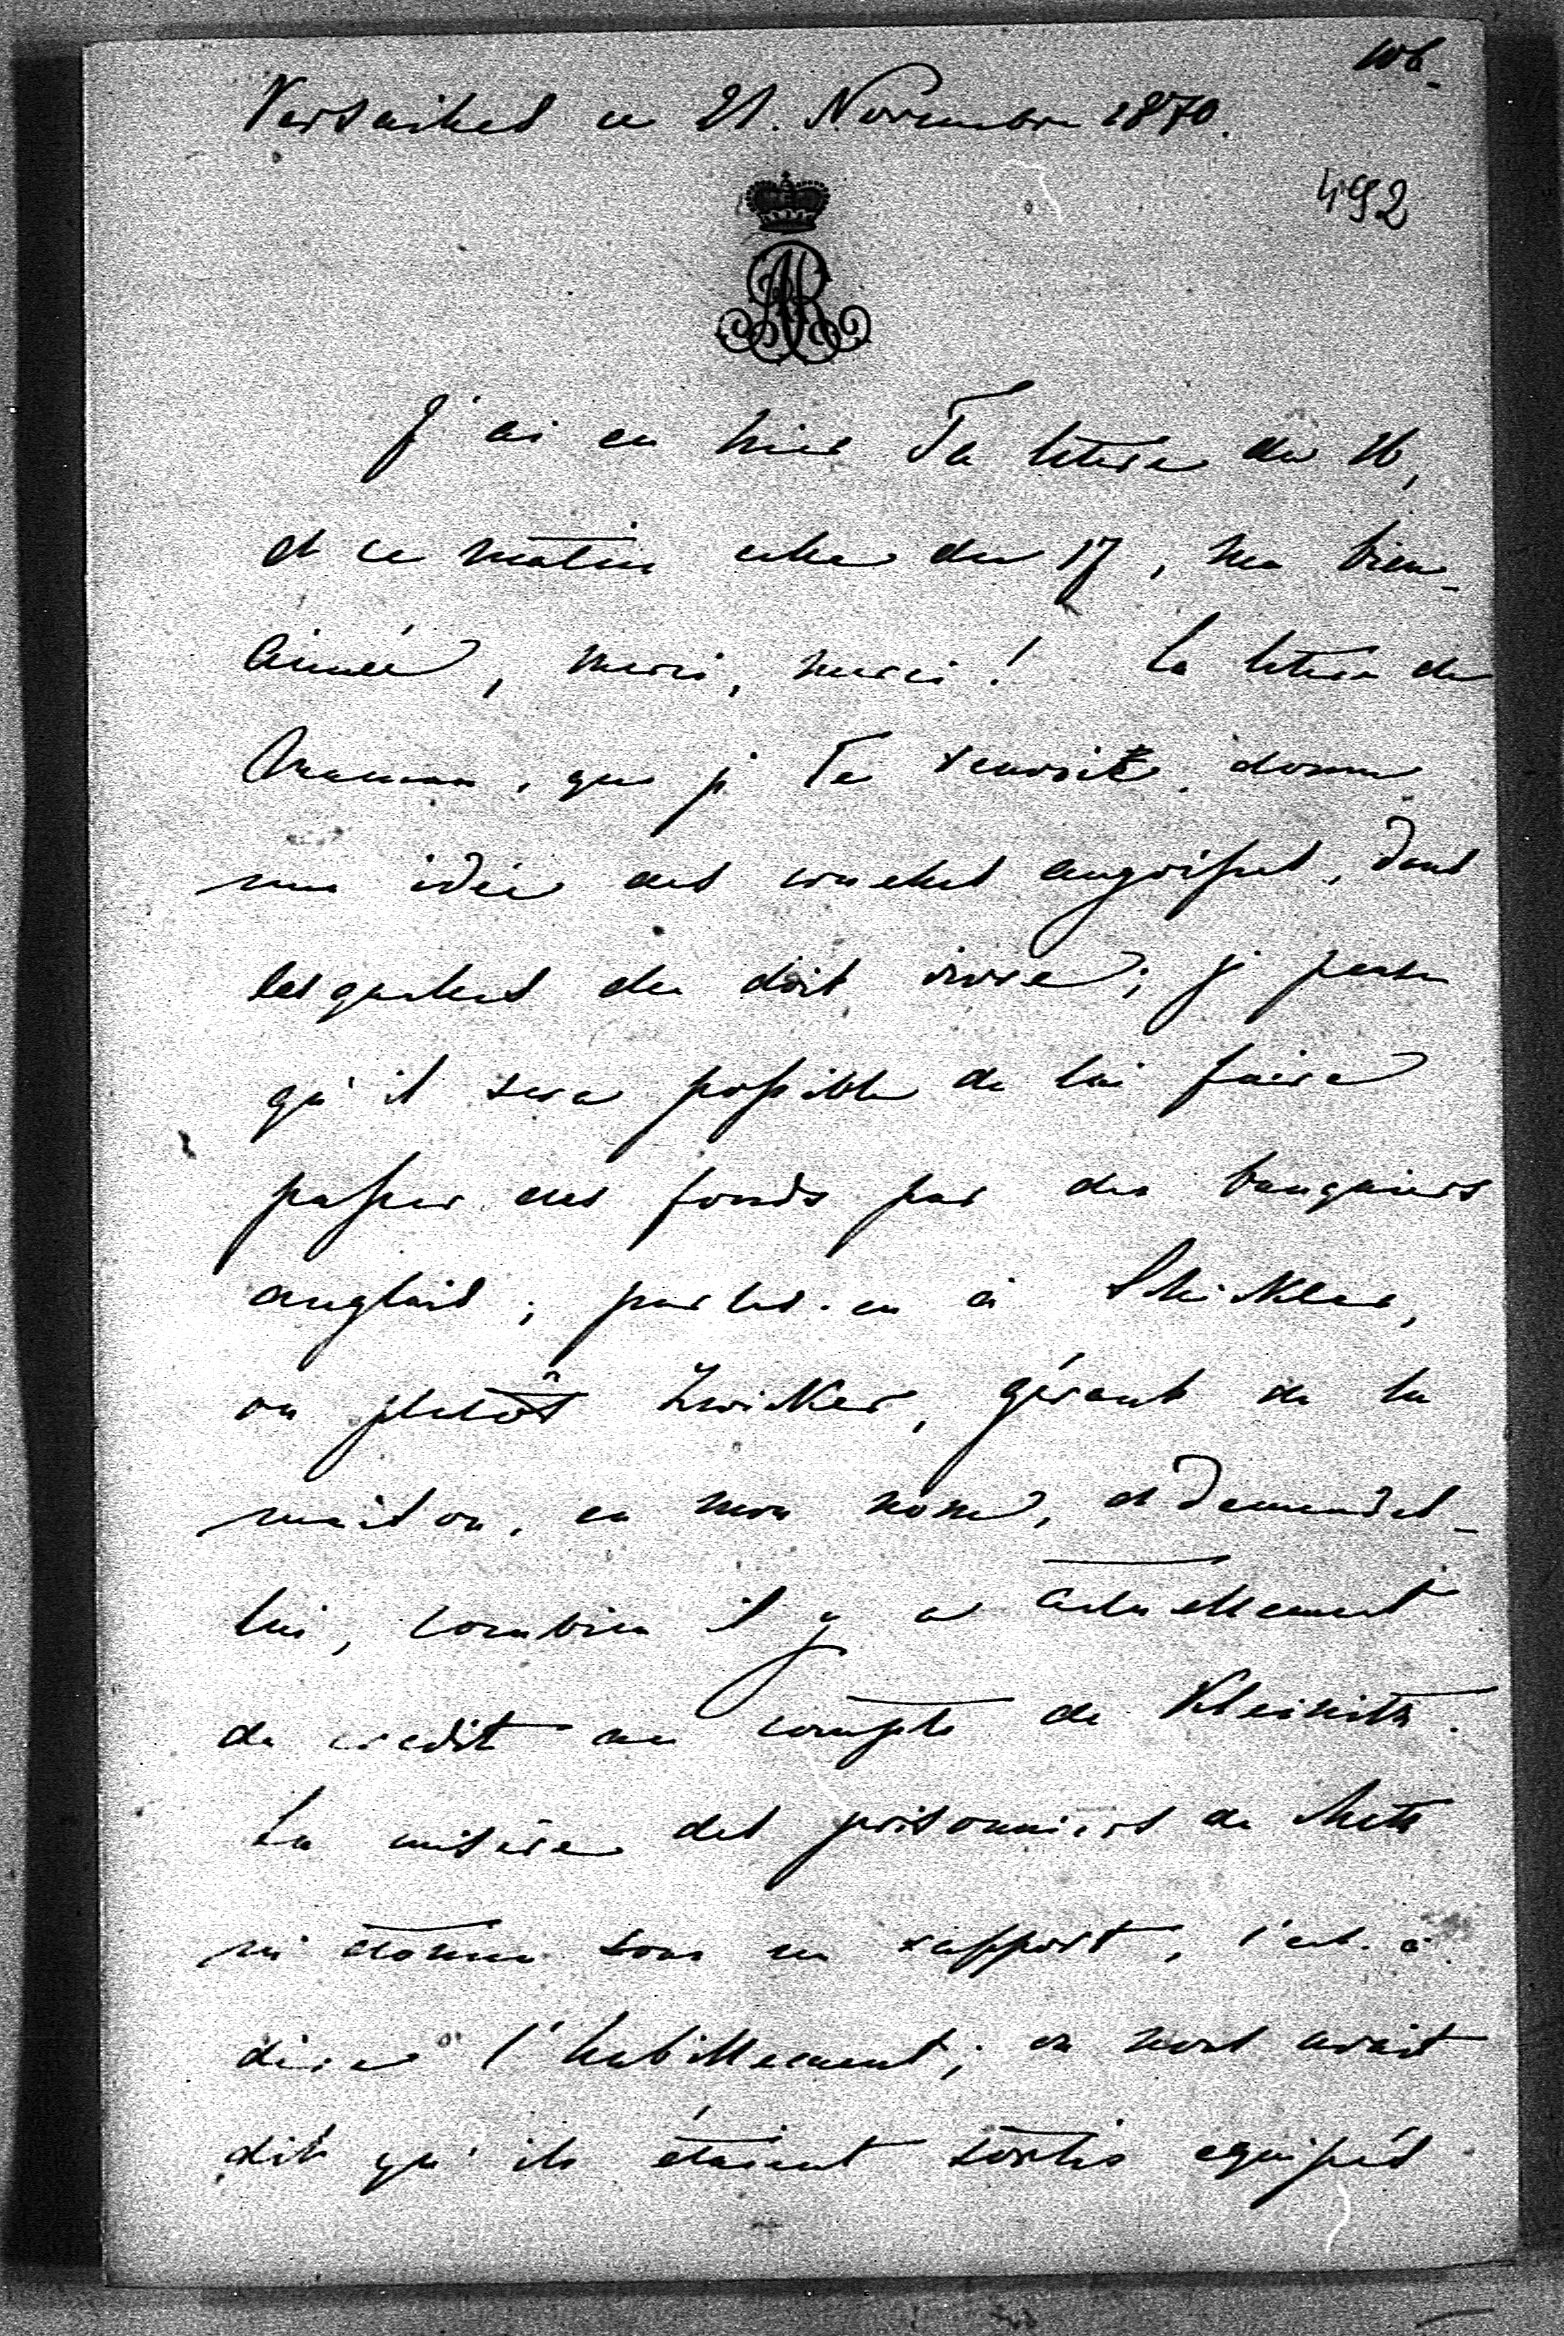 106.
Versailles ce 21. Novembre 1870.
492
AR
J'ai eu hier Ta lettre du 16,
et ce matin celle du 17, ma bien-
aimée, merci, merci! La lettre de
Maman, que je Te renvoie, donne
une idée des angoisses, dans
lesquelles elle doit vivre; je pense
qu'il sera possible de lui faire
passer des fonds par des banquiers
anglais; parles-en à Schickler,
ou plutôt Zwicker, gérant de la
maison, en mon nom, et demandes-
lui, combien il y a actuellement
de credit au compte de Kleinitz.
La misère des prisonniers de Metz
m'étonne sous un rapport, c'est-à-
dire l'habillement; on nous avait
dit qu'ils étaient sortis equipés